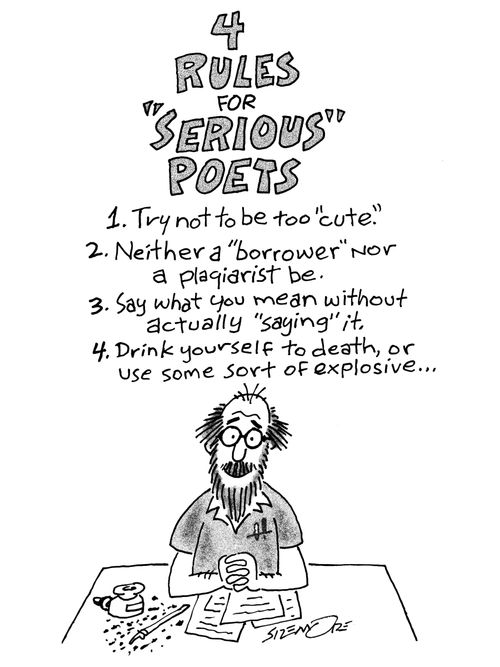 4
RULES
FOR
"SERIOUS"
POETS
1. Try not to be too "cute."
2. Neither a "borrower" NOR
a plagiarist be.
3. Say what you mean without
actually "saying" it.
4. Drink yourself to death, or
use some sort of explosive...
SIZEMORE